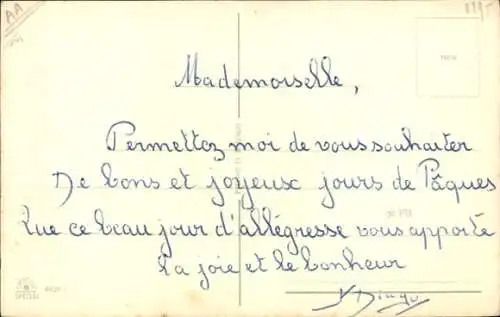 AA
Mademoiselle,
Permettez moi de vous souhaiter
De bons et joyeux jours de Pâques
Que ce beau jour d'allégresse vous apporte
La joie et le bonheur